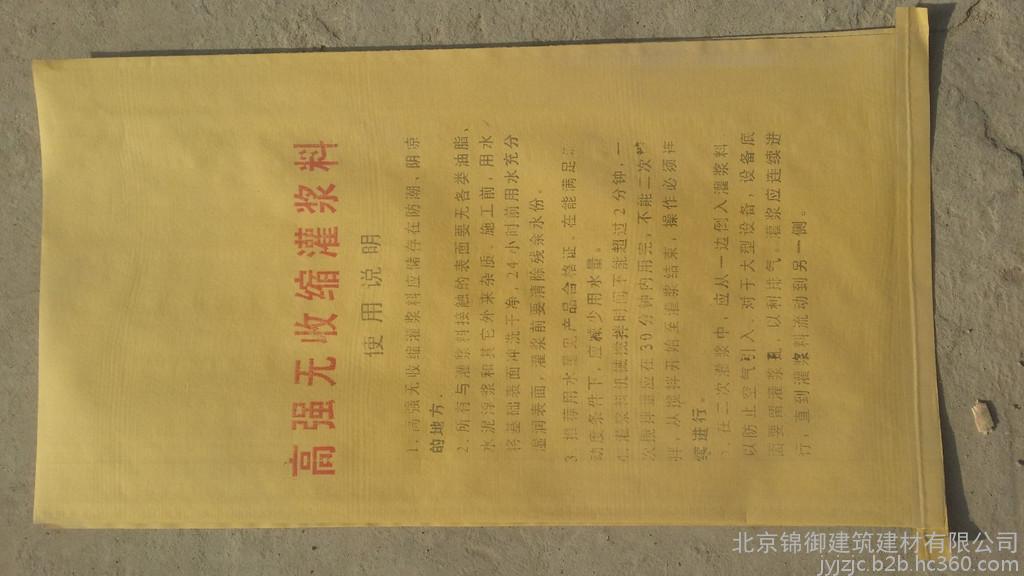 高强无收缩灌浆料
使用说明
1、高强无收缩灌浆料应储存在防潮、阴凉
的地方.
2.所有与灌浆料接触的表面要无各类油脂、
水泥浮浆和其它外来杂质.施工前,用水
将基础表面冲洗干净,24小时前用水充分
湿润表面,灌浆前要清除残余水份。
3.推荐用水量见产品合格证.在能满足
动度条件下,应减少用水量。
4.灌浆料机械搅拌时间不能超过2分钟,一
次搅拌量应在30分钟内用完,不能二次
拌,从搅拌开始至灌浆结束,操作必须连
续进行。
在二次灌浆中,应从一边倒入灌浆料
以防止空气引入.对于大型设备.设备底
面要留灌浆孔,以利排气.灌浆应连续进
行,直到灌浆料流动到另一侧。
北京锦御建筑建材有限公司
jyjzjc.b2b.hc360.com